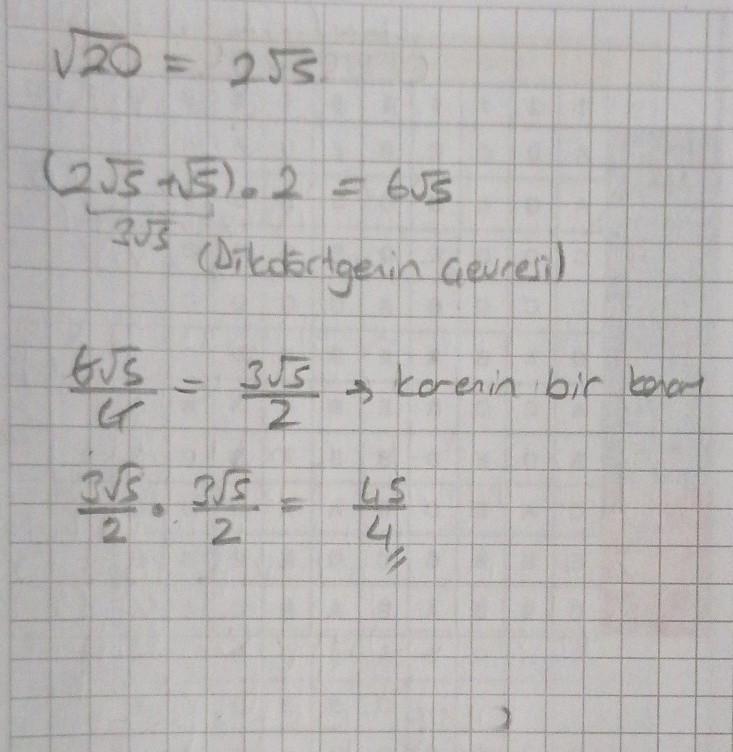 √20 = 2√5
(2√5+√5).2 = 6√5
3√5
(Dikdörtgenin Çevresi)
6√5/4 = 3√5/2 → karenin bir kenarı
3√5/2 . 3√5/2 = 45/4